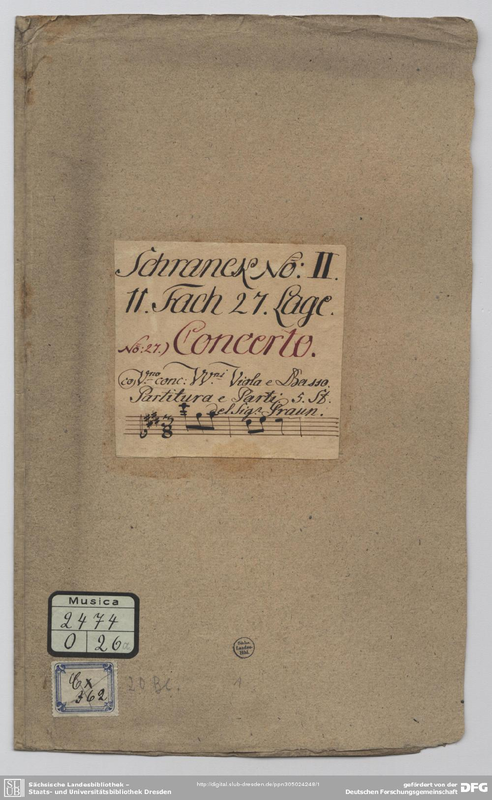 Schranck No: II.
11. Fach 27. Lage.
No: 27.) Concerto.
co V.no conc: VV.ni Viola e Basso.
Partitura e Parti. 5. St:
del Sig.r Graun.
Musica
2474
O 26a
Cx
562
20 Bl.
1
Sächsische Landesbibliothek –
Staats- und Universitätsbibliothek Dresden
http://digital.slub-dresden.de/
gefördert von der
Deutschen Forschungsgemeinschaft
DFG